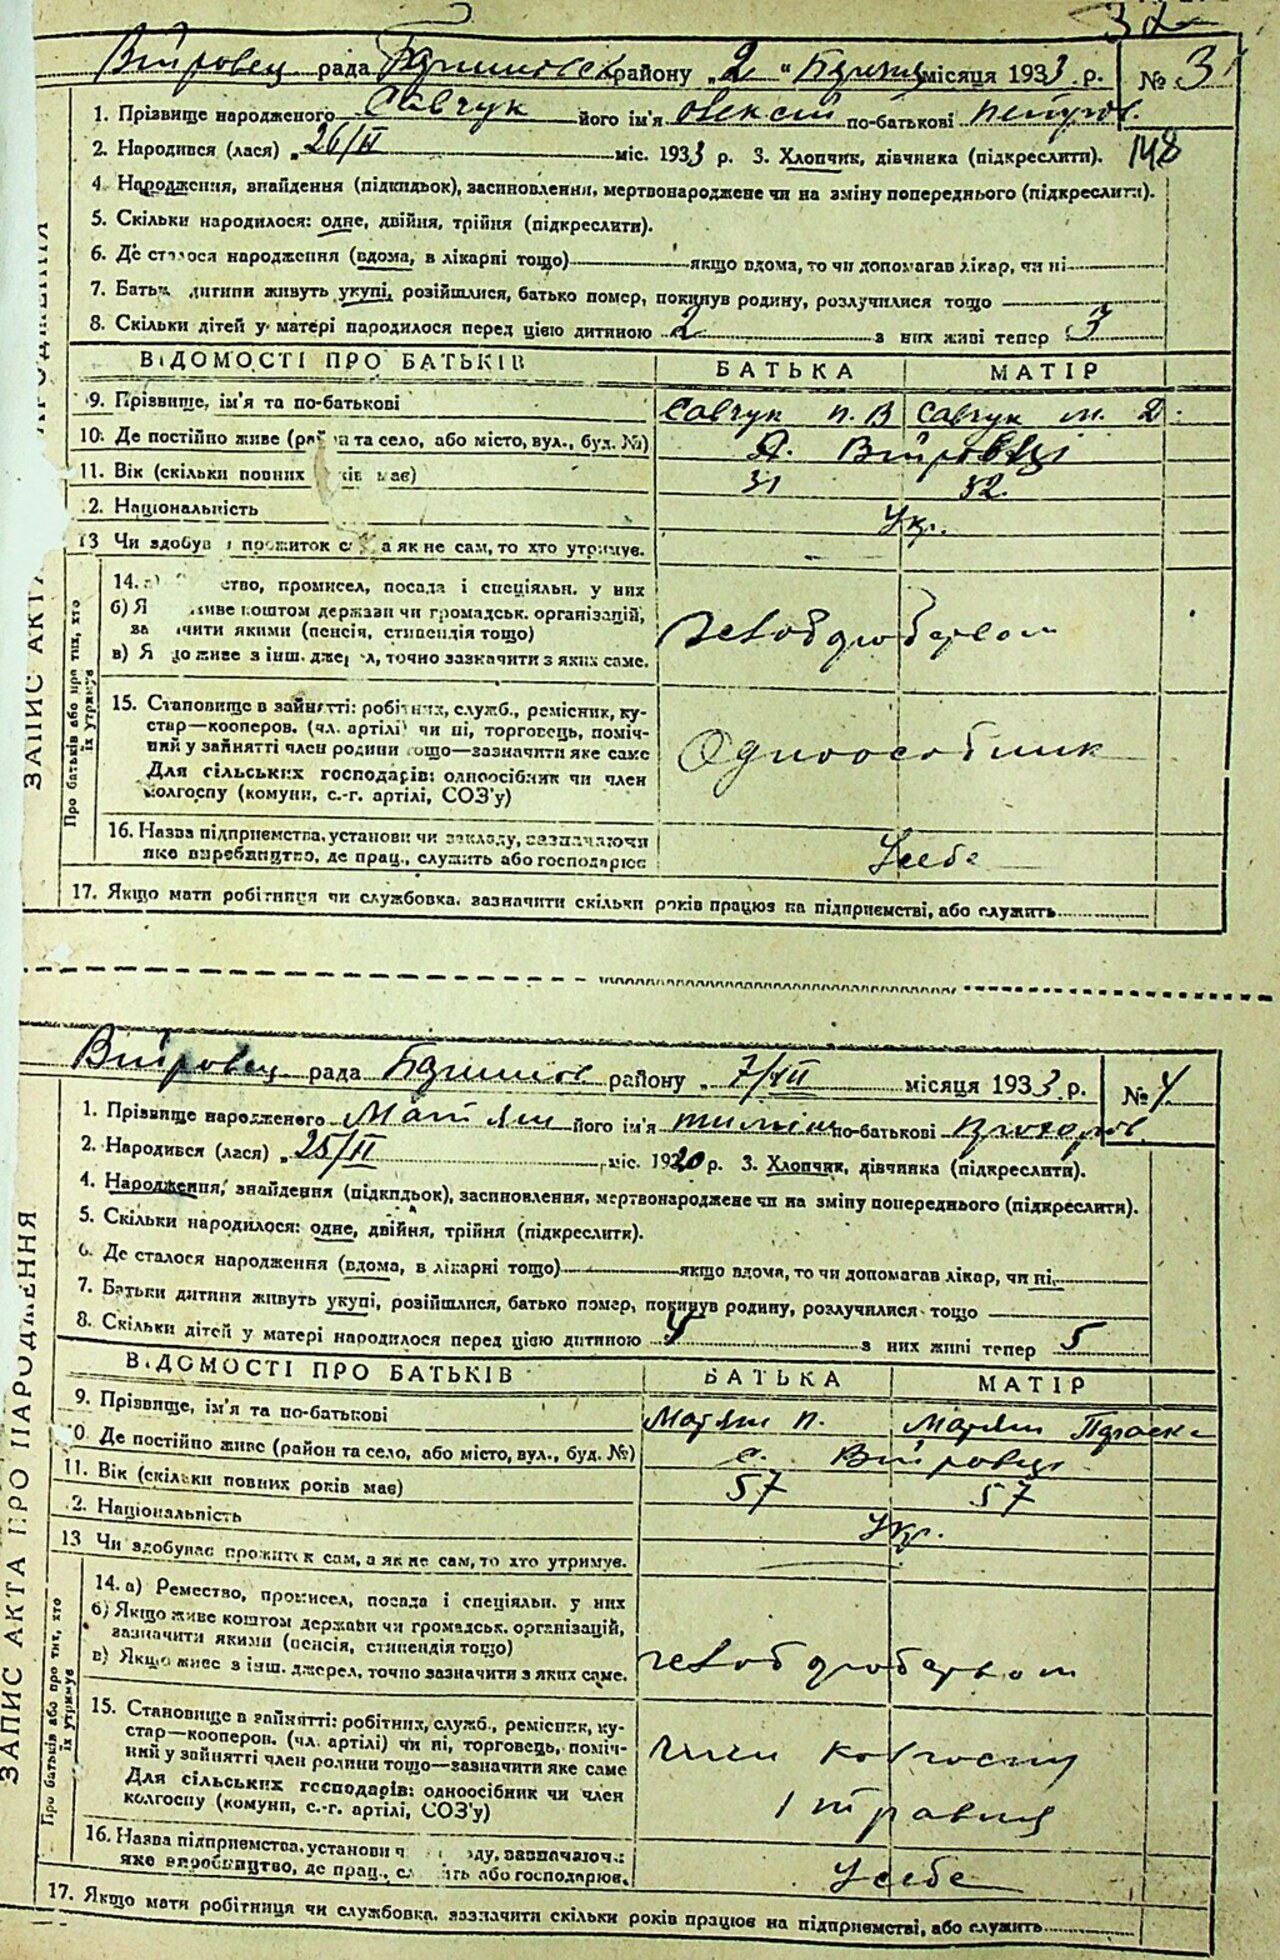 32
Війровец рада району „ 2 “ місяця 1933 р. № 3
1. Прізвище народженого Савчук його ім'я Олексій по-батькові Петров.
2. Народився (лася) „ 26/II міс. 1933 р. 3. Хлопчик, дівчинка (підкреслити). 148
4 Народження, знайдення (підкидьок), засиновлення, мертвонароджене чи на зміну попереднього (підкреслити).
5. Скільки народилося: одне, двійня, трійня (підкреслити).
6. Де сталося народження (вдома, в лікарні тощо) якщо вдома, то чи допомагав лікар, чи ні
7. Батьки дитини живуть укупі, розійшлися, батько помер, покинув родину, розлучилися тощо
8. Скільки дітей у матері народилося перед цією дитиною 2 з них живі тепер 3
ВІДОМОСТІ ПРО БАТЬКІВ БАТЬКА МАТІР
9. Прізвище, ім'я та по-батькові Савчук П. В Савчук М. Д.
10. Де постійно живе (ра та село, або місто, вул., буд. №) Війровці
11. Вік (скільки повних ків має) 31 32.
2. Національність Укр.
13 Чи здобув прожиток с а як не сам, то хто утримує. —
ЗАПИС АКТА
Про батьків або про тих, хто їх утримує
14. а) ство, промисел, посада і спеціяльн. у них
б) Я живе коштом держави чи громадськ. організацій,
за чити якими (пенсія, стипендія тощо) хлебороб
в) Я що живе з інш. джерел, точно зазначити з яких саме.
15. Становище в зайнятті: робітник, служб., ремісник, ку-
стар—кооперов. (чл. артілі) чи ні, торговець, поміч-
ний у зайнятті член родини тощо—зазначити яке саме Одноособник
Для сільських господарів: одноосібник чи член
колгоспу (комуни, с.-г. артілі, СОЗ'у)
16. Назва підприємства, установи чи закладу, зазначаючи
яке виробництво, де прац., служить або господарює У себе
17. Якщо мати робітниця чи службовка, зазначити скільки років працює на підприємстві, або служить
Війровец рада району „ 7/VII місяця 1933 р. № 4
1. Прізвище народженого Матяш його ім'я по-батькові Прохоров.
2. Народився (лася) „ 25/II міс. 1920 р. 3. Хлопчик, дівчинка (підкреслити).
4. Народження, знайдення (підкидьок), засиновлення, мертвонароджене чи на зміну попереднього (підкреслити).
5. Скільки народилося: одне, двійня, трійня (підкреслити).
6. Де сталося народження (вдома, в лікарні тощо) якщо вдома, то чи допомагав лікар, чи ні,
7. Батьки дитини живуть укупі, розійшлися, батько помер, покинув родину, розлучилися тощо
8. Скільки дітей у матері народилося перед цією дитиною 4 з них живі тепер 5
ВІДОМОСТІ ПРО БАТЬКІВ БАТЬКА МАТІР
9. Прізвище, ім'я та по-батькові Матяш П. Матяш
0. Де постійно живе (район та село, або місто, вул., буд. №) с. Війровці
11. Вік (скільки повних років має) 57 57
2. Національність Укр.
13 Чи здобуває прожиток сам, а як не сам, то хто утримує.
ЗАПИС АКТА ПРО НАРОДЖЕННЯ
Про батьків або про тих, хто їх утримує
14. а) Ремество, промисел, посада і спеціяльн. у них
б) Якщо живе коштом держави чи громадськ. організацій,
зазначити якими (пенсія, стипендія тощо)
в) Якщо живе з інш. джерел, точно зазначити з яких саме.
15. Становище в зайнятті: робітник, служб., ремісник, ку-
стар—кооперов. (чл. артілі) чи ні, торговець, поміч-
ний у зайнятті член родини тощо—зазначити яке саме член колгоспу
Для сільських господарів: одноосібник чи член
колгоспу (комуни, с.-г. артілі, СОЗ'у) 1 травня
16. Назва підприємства, установи ч ду, зазначаючи
яке виробництво, де прац., сл ить або господарює. У себе
17. Якщо мати робітниця чи службовка, зазначити скільки років працює на підприємстві, або служить